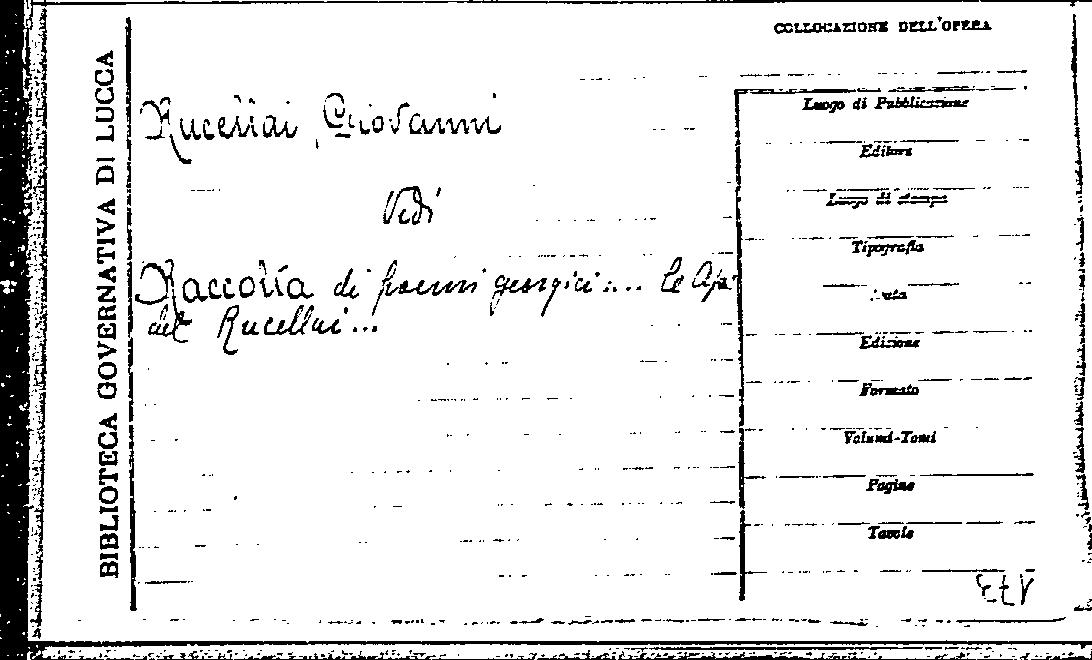 BIBLIOTECA GOVERNATIVA DI LUCCA
COLLOCAZIONE DELL'OPERA
Rucellai, Giovanni
Vedi
Raccolta di poemi georgici.... Le Api
del Rucellai...
Luogo di Pubblicazione
Editore
Luogo di stampa
Tipografia
Data
Edizione
Formato
Volumi-Tomi
Pagine
Tavole